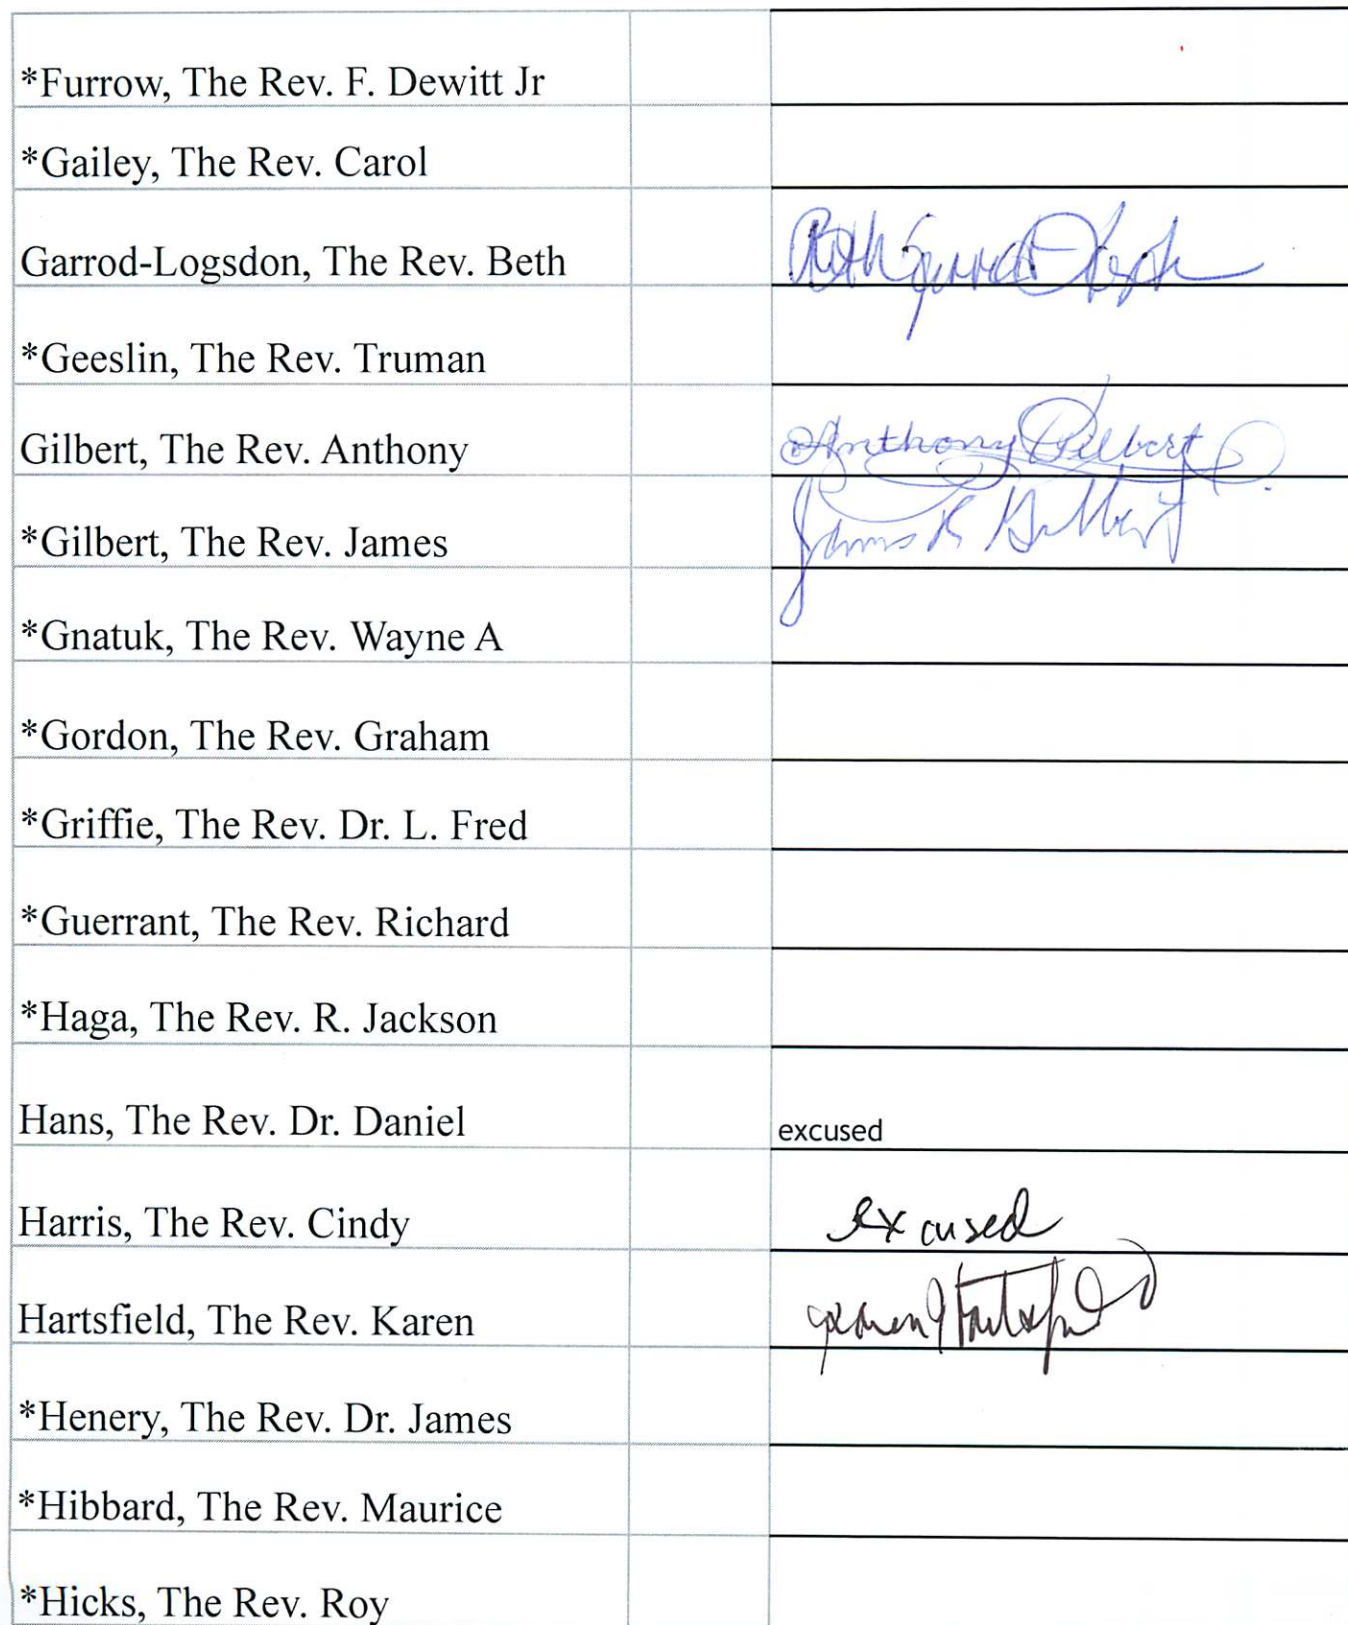 *Furrow, The Rev. F. Dewitt Jr
*Gailey, The Rev. Carol
Garrod-Logsdon, The Rev. Beth Beth Garrod-Logsdon
*Geeslin, The Rev. Truman
Gilbert, The Rev. Anthony Anthony Gilbert
*Gilbert, The Rev. James James R Gilbert
*Gnatuk, The Rev. Wayne A
*Gordon, The Rev. Graham
*Griffie, The Rev. Dr. L. Fred
*Guerrant, The Rev. Richard
*Haga, The Rev. R. Jackson
Hans, The Rev. Dr. Daniel excused
Harris, The Rev. Cindy excused
Hartsfield, The Rev. Karen Karen Hartsfield
*Henery, The Rev. Dr. James
*Hibbard, The Rev. Maurice
*Hicks, The Rev. Roy